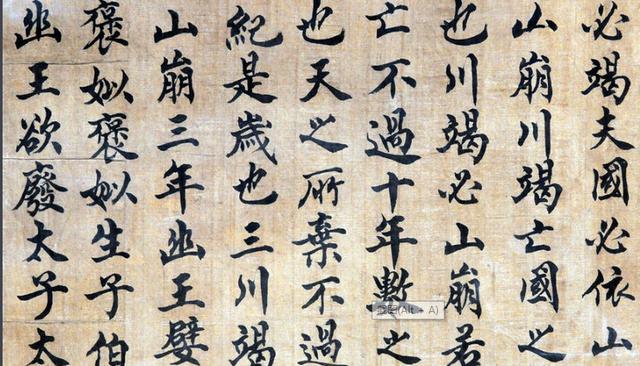 必竭夫國必依山
山崩川竭亡國之
也川竭必山崩若
亡不過十年數之
也天之所棄不過
紀是歲也三川竭
山崩三年幽王嬖
褒姒褒姒生子伯
幽王欲廢太子太
截图(Alt + A)